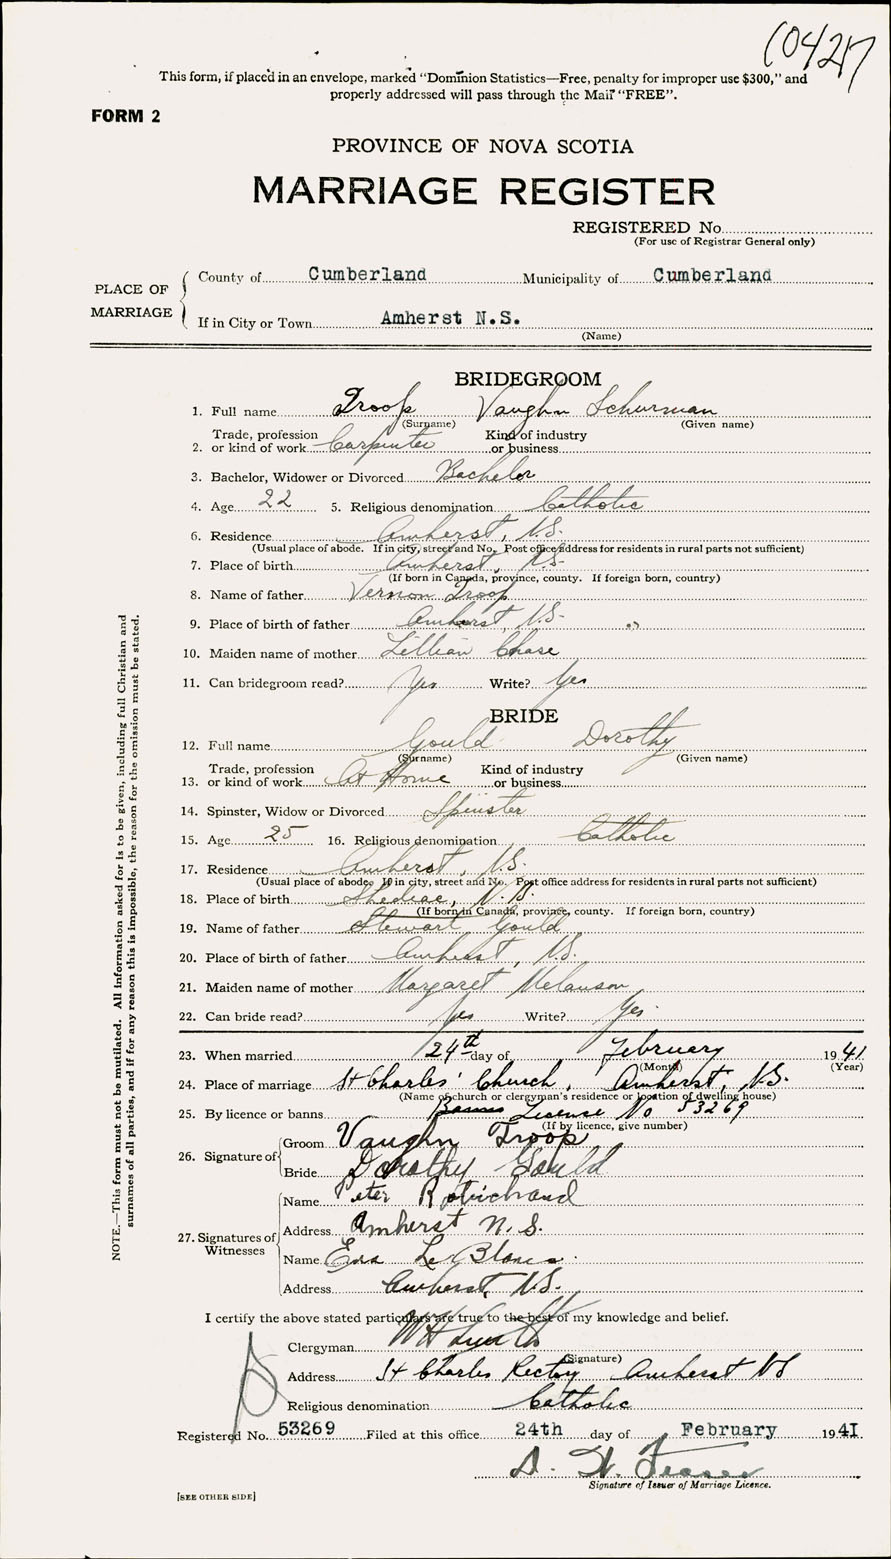 (0421)
This form, if placed in an envelope, marked "Dominion Statistics—Free, penalty for improper use $300," and
properly addressed will pass through the Mail "FREE".
FORM 2
PROVINCE OF NOVA SCOTIA
MARRIAGE REGISTER
REGISTERED No.
(For use of Registrar General only)
PLACE OF MARRIAGE
County of Cumberland Municipality of Cumberland
If in City or Town Amherst N.S.
(Name)
BRIDEGROOM
1. Full name Troop Vaughn Schurman
(Surname) (Given name)
2. Trade, profession or kind of work Carpenter Kind of industry or business
3. Bachelor, Widower or Divorced Bachelor
4. Age 22 5. Religious denomination Catholic
6. Residence Amherst, N.S.
(Usual place of abode. If in city, street and No. Post office address for residents in rural parts not sufficient)
7. Place of birth Amherst, N.S.
(If born in Canada, province, county. If foreign born, country)
8. Name of father Vernon Troop
9. Place of birth of father Amherst, N.S.
10. Maiden name of mother Lillian Chase
11. Can bridegroom read? Yes Write? Yes
BRIDE
12. Full name Gould Dorothy
(Surname) (Given name)
13. Trade, profession or kind of work At Home Kind of industry or business
14. Spinster, Widow or Divorced Spinster
15. Age 25 16. Religious denomination Catholic
17. Residence Amherst, N.S.
(Usual place of abode. If in city, street and No. Post office address for residents in rural parts not sufficient)
18. Place of birth Shediac, N.B.
(If born in Canada, province, county. If foreign born, country)
19. Name of father Stewart Gould
20. Place of birth of father Amherst, N.S.
21. Maiden name of mother Margaret Melanson
22. Can bride read? Yes Write? Yes.
23. When married 24th day of February 1941
(Month) (Year)
24. Place of marriage St Charles' Church, Amherst, N.S.
(Name of church or clergyman's residence or location of dwelling house)
25. By licence or banns Banns License No 53269
(If by licence, give number)
26. Signature of
Groom Vaughn Troop
Bride Dorothy Gould
27. Signatures of Witnesses
Name Peter Robichaud
Address Amherst N.S.
Name LeBlanc
Address Amherst, N.S.
I certify the above stated particulars are true to the best of my knowledge and belief.
Clergyman
(Signature)
Address St Charles Rectory Amherst NS
Religious denomination Catholic
Registered No. 53269 Filed at this office 24th day of February 1941
Signature of Issuer of Marriage Licence.
[SEE OTHER SIDE]
NOTE.—This form must not be mutilated. All Information asked for is to be given, including full Christian and
surnames of all parties, and if for any reason this is impossible, the reason for the omission must be stated.